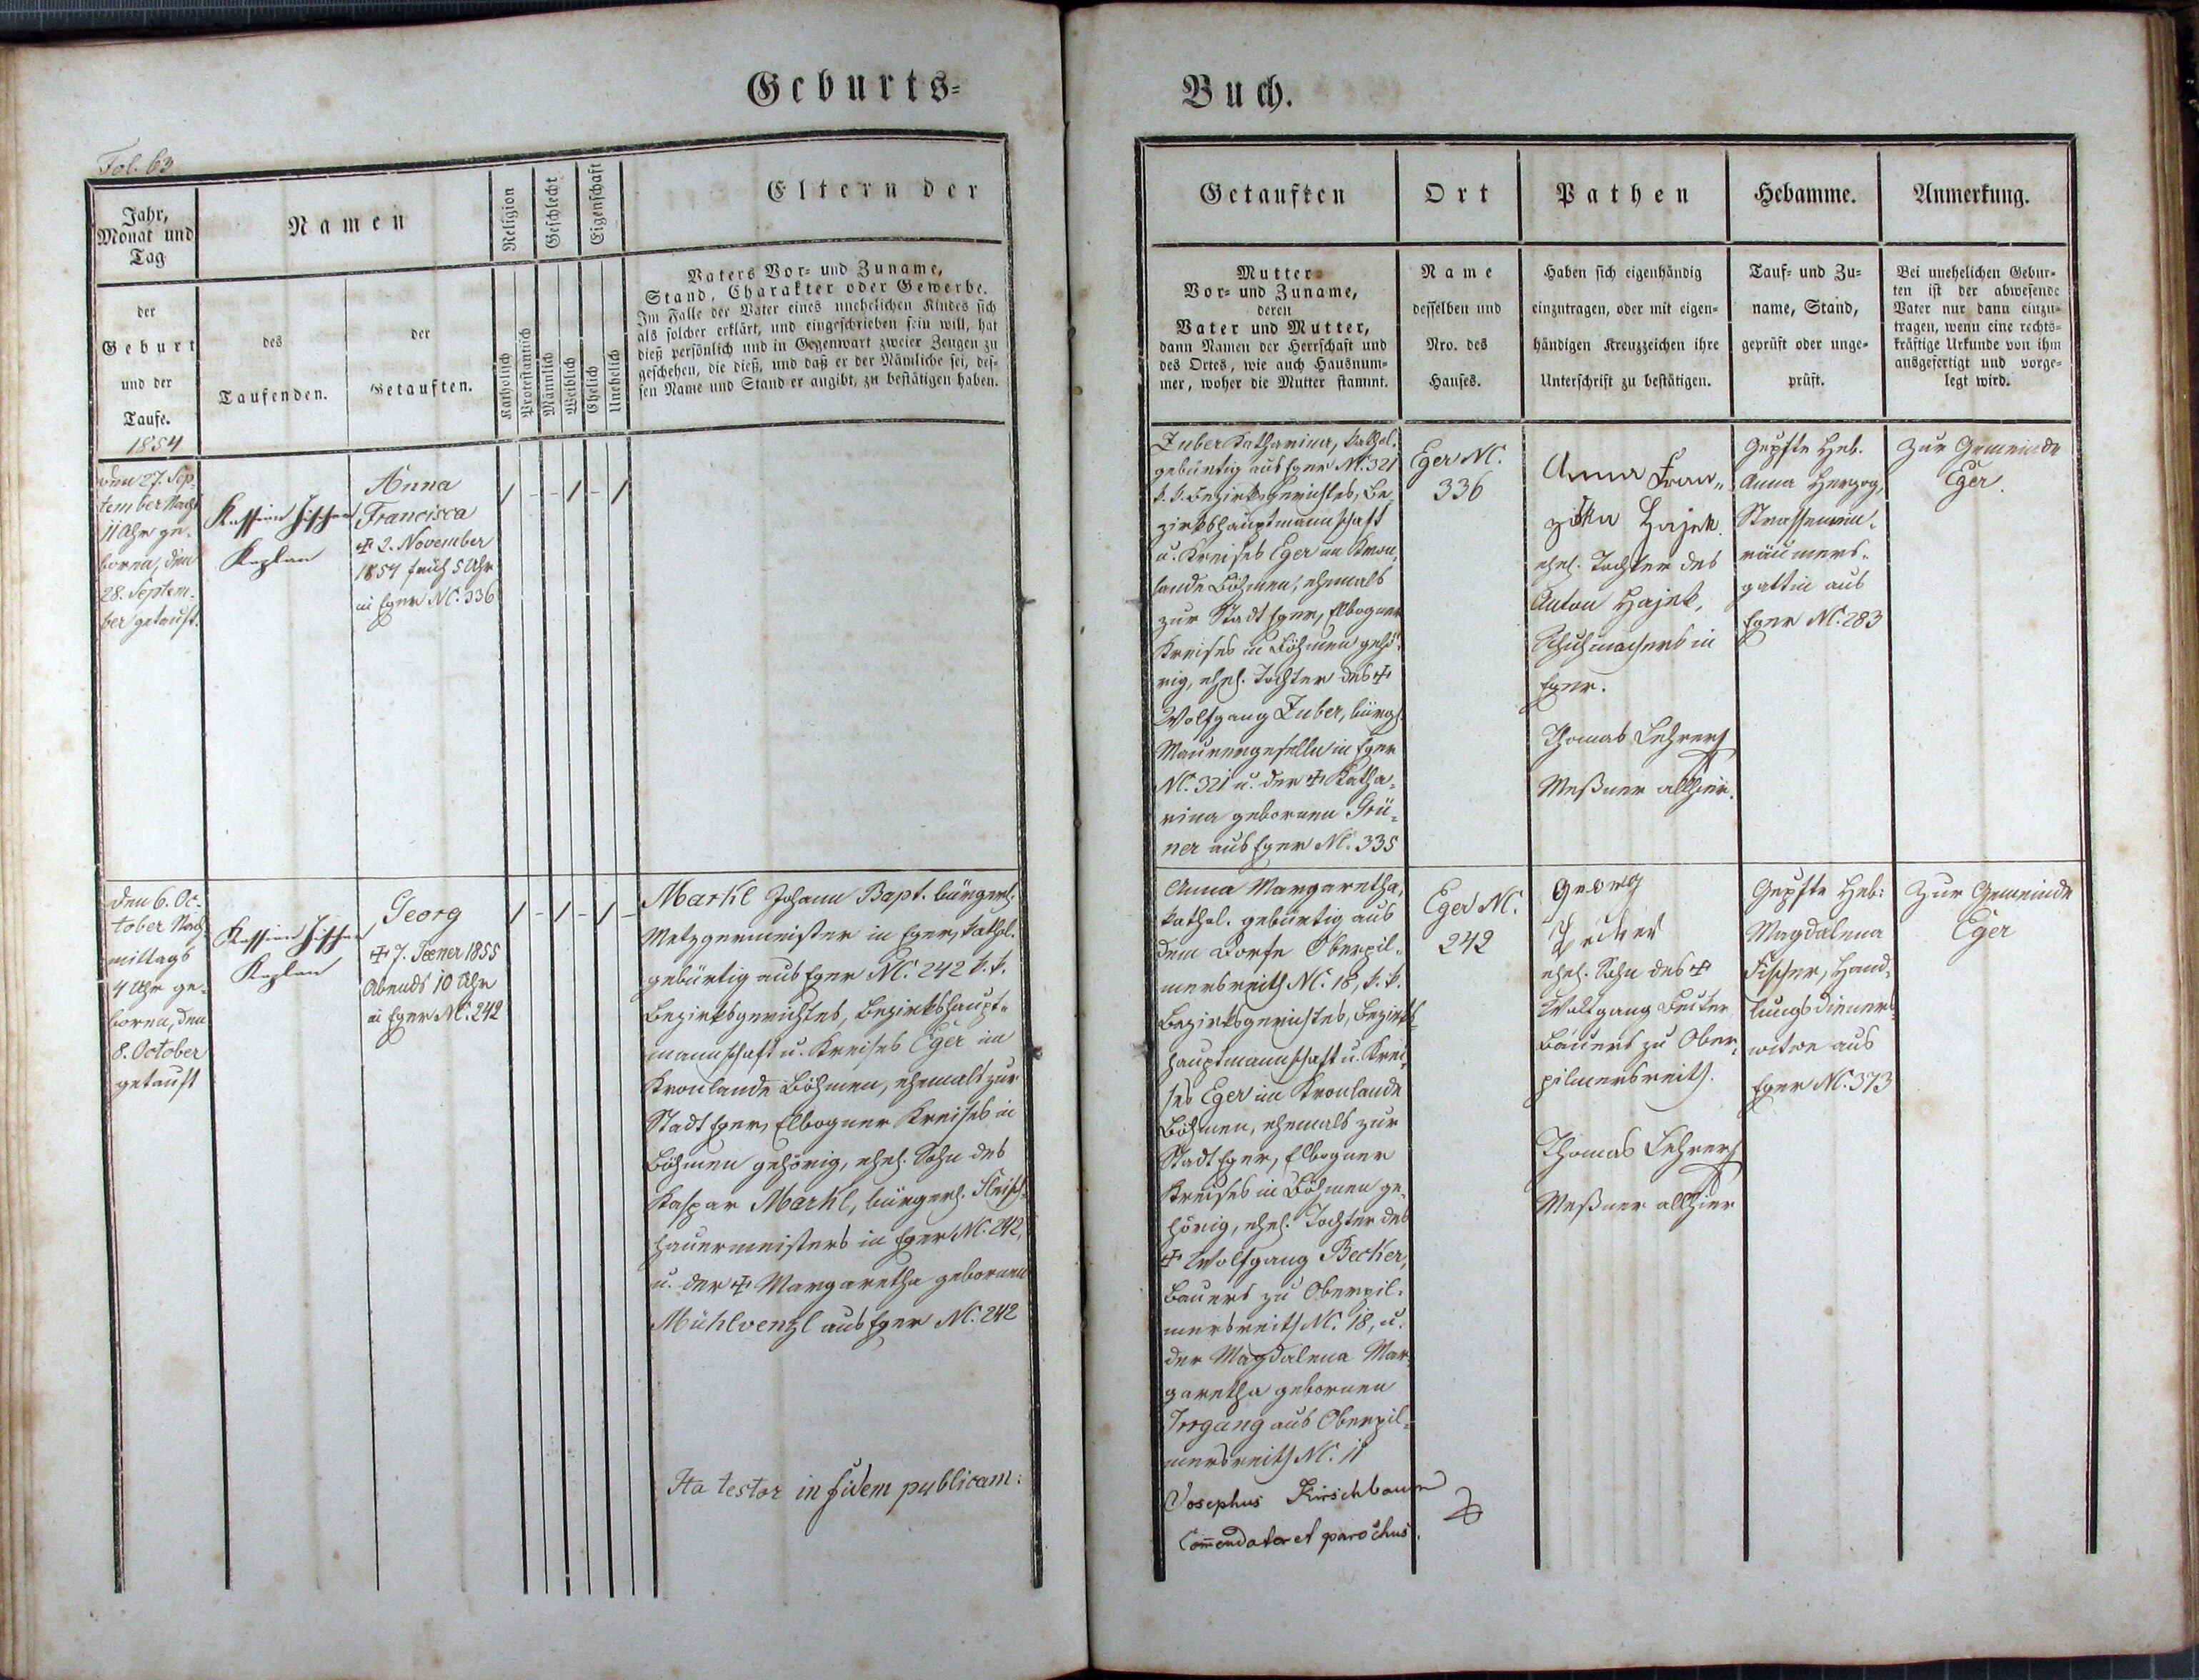 Geburts=
Buch.
Fol. 63
Jahr,
Monat und
Tag
der
Geburt
und der
Taufe.
1854
Namen
des
Taufenden.
der
Getauften.
Religion
Katholisch
Protestantisch
Geschlecht
Männlich
Weiblich
Eigenschaft
Ehelich
Unehelich
Eltern der
Vaters Vor= und Zuname,
Stand, Charakter oder Gewerbe.
Im Falle der Vater eines unehelichen Kindes sich
als solcher erklärt, und eingeschrieben sein will, hat
dieß persönlich und in Gegenwart zweier Zeugen zu
geschehen, die dieß, und daß er der Nämliche sei, des=
sen Name und Stand er angibt, zu bestätigen haben.
Getauften
Mutter
Vor= und Zuname,
deren
Vater und Mutter,
dann Namen der Herrschaft und
des Ortes, wie auch Hausnum=
mer, woher die Mutter stammt.
Ort
Name
desselben und
Nro. des
Hauses.
Pathen
Haben sich eigenhändig
einzutragen, oder mit eigen=
händigen Kreuzzeichen ihre
Unterschrift zu bestätigen.
Hebamme.
Tauf= und Zu=
name, Stand,
geprüft oder unge=
prüft.
Anmerkung.
Bei unehelichen Gebur=
ten ist der abwesende
Vater nur dann einzu=
tragen, wenn eine rechts=
kräftige Urkunde von ihm
ausgefertigt und vorge=
legt wird.
den 27. Sep=
tember Nachts
11 Uhr ge=
boren, den
28. Septem=
ber getauft.
Kassian Fischer
Kaplan
Anna
Francisca
✠ 2. November
1854 früh 5 Uhr
in Eger NC. 336
/ - - / - /
Zuber Katharina, kathol.
gebürtig aus Eger NC. 321
k. k. Bezirksgerichtes, Be=
zirkshauptmannschaft
u. Kreises Eger im Kron=
lande Böhmen, ehemals
zur Stadt Eger, Elbogner
Kreises in Böhmen gehö=
rig, ehel. Tochter des ✠
Wolfgang Zuber, bürgl.
Maurergesellen in Eger
NC. 321 u. der ✠ Katha=
rina gebornen Grü=
ner aus Eger NC. 335
Eger NC.
336
Anna Fran=
ziska Hajek
ehel. Tochter des
Anton Hajek,
Schuhmachers in
Eger.
Thomas Lehrer
Meßner allhier.
Geprfte Heb.
Anna Herzog,
Strassenein=
räumers=
gattin aus
Eger NC. 283
Zur Gemeinde
Eger.
den 6. Oc=
tober Nach=
mittags
4 Uhr ge=
boren, den
8. October
getauft
Kassian Fischer
Kaplan
Georg
✠ 7. Jäner 1855
Abends 10 Uhr
in Eger NC. 242
/ - / - / -
Markl Johann Bapt. bürgerl.
Metzgermeister in Eger, kathol.
gebürtig aus Eger NC. 242 k. k.
Bezirksgerichtes, Bezirkshaupt=
mannschaft u. Kreises Eger im
Kronlande Böhmen, ehemals zur
Stadt Eger, Elbogner Kreises in
Böhmen gehörig, ehel. Sohn des
Kaspar Markl, bürgerl. Fleisch=
hauermeisters in Eger NC. 242,
u. der ✠ Margaretha gebornen
Mühlvenzl aus Eger NC. 242
Anna Margaretha,
kathol. gebürtig aus
dem Dorfe Oberpil=
mersreith NC. 18, k. k.
Bezirksgerichtes, Bezirks=
hauptmannschaft u. Krei=
ses Eger im Kronlande
Böhmen, ehemals zur
Stadt Eger, Elbogner
Kreises in Böhmen ge=
hörig, ehel. Tochter des
✠ Wolfgang Becker,
Bauers zu Oberpil=
mersreith NC. 18, u.
der Magdalena Mar=
garetha gebornen
Irrgang aus Oberpil=
mersreith NC. 11
Eger NC.
242
Georg
Becker
ehel. Sohn des ✠
Wolfgang Becker
Bauers zu Ober=
pilmersreith.
Thomas Lehrer
Meßner allhier
Geprfte Heb:
Magdalena
Fischer, Hand=
lungsdieners=
witwe aus
Eger NC. 373
Zur Gemeinde
Eger
Ita testor in fidem publicam:
Josephus Kirschbaum
Com̄endator et parochus.